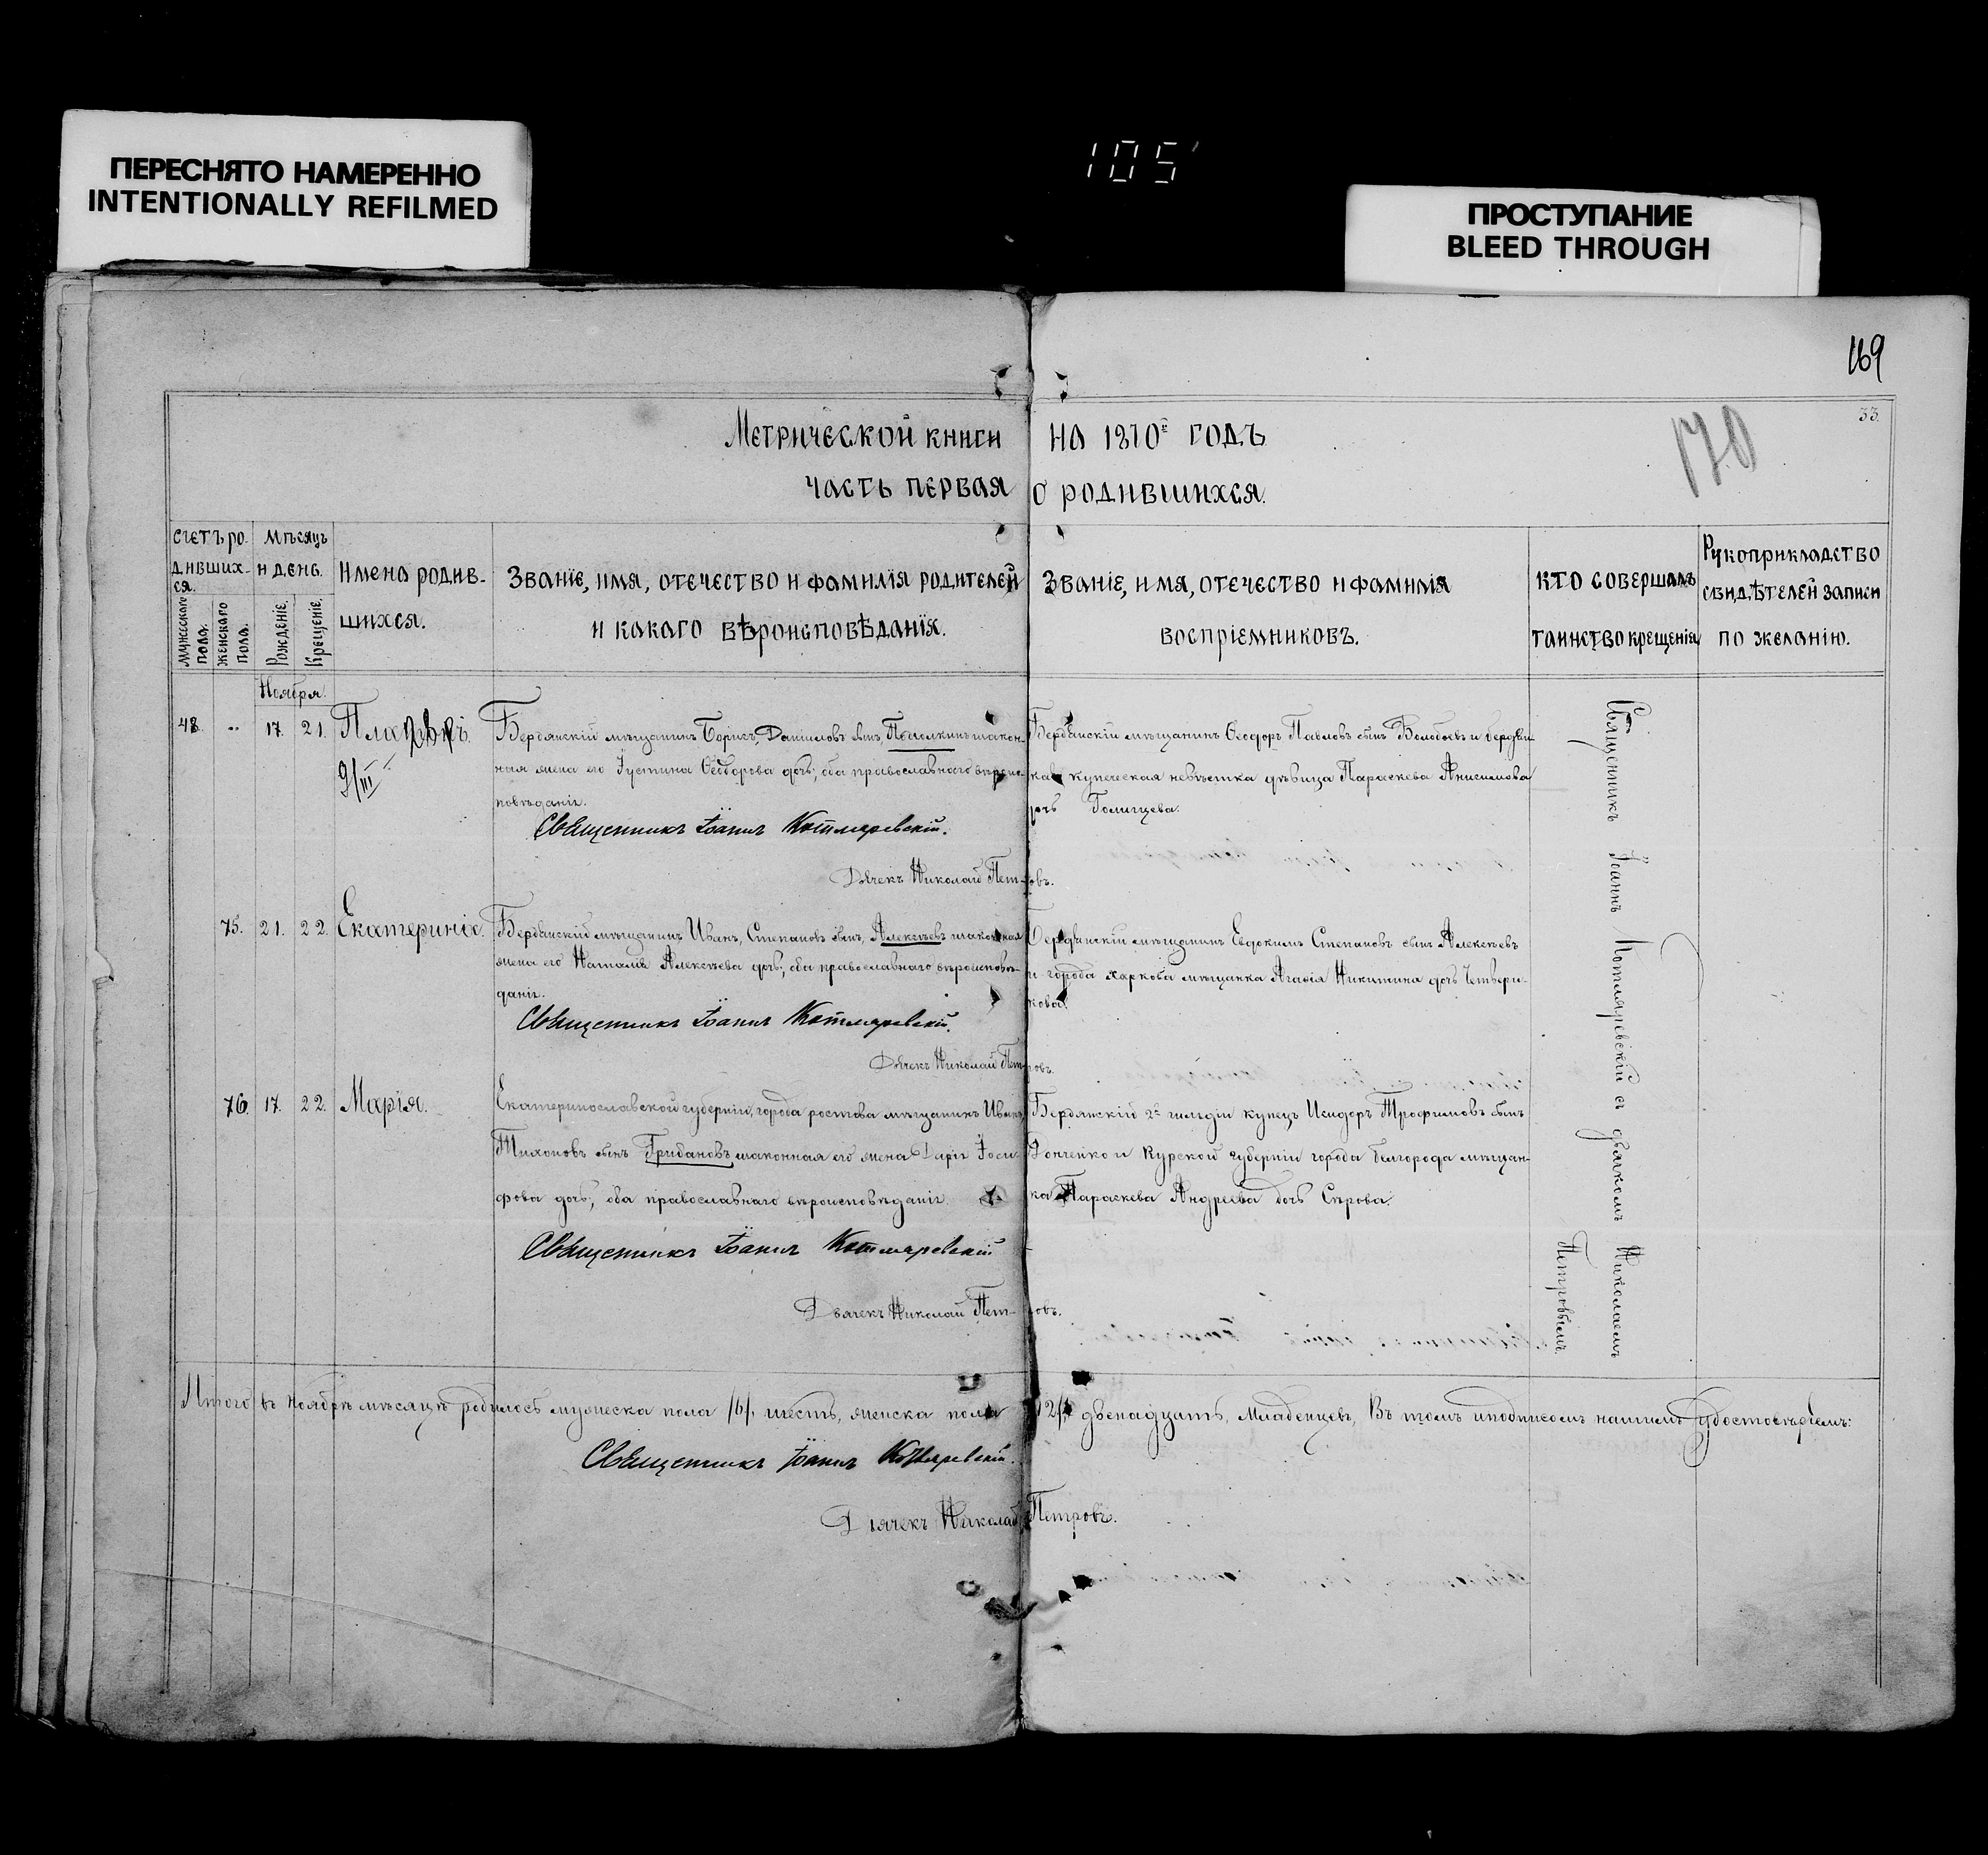 ПЕРЕСНЯТО НАМЕРЕННО
INTENTIONALLY REFILMED
105
ПРОСТУПАНИЕ
BLEED THROUGH
169
170
33.
Метрической книги на 1870й годъ
часть первая о родившихся.
Счетъ родившихся.
Мѣсяцъ и день.
Имена родившихся.
Званіе, имя, отечество и фамилія родителей
и какаго вѣроисповѣданія.
Званіе, имя, отечество и фамилія
воспріемниковъ.
Кто совершалъ
таинство крещенія
Рукоприкладство
свидѣтелей записи
по желанію.
мужескаго пола.
женскаго пола.
Рожденіе.
Крещеніе.
Ноября.
48 „ 17. 21.
9/III
Бердянскій мѣщанинъ Борисъ, Даніиловъ сынъ, закон-
ная жена его Іустина Ѳеодорова дочь, оба православнаго вѣроис-
повѣданія.
Священникъ Іоаннъ Котляревскій.
Дьячекъ Николай Петровъ.
Бердянскій мѣщанинъ Ѳеодоръ Павловъ сынъ и бердян-
кая купеческая невѣстка дѣвица Параскева Анисимова
дочь Голищева.
75. 21. 22. Екатерина.
Бердянскій мѣщанинъ Иванъ, Степановъ сынъ, Алексѣевъ законная
жена его Наталія Алексѣева дочь, оба православнаго вѣроисповѣ-
данія.
Священникъ Іоаннъ Котляревскій.
Дьячекъ Николай Петровъ.
Бердянскій мѣщанинъ Евдокимъ Степановъ сынъ Алексѣевъ
и города харкова мѣщанка Агафія Никитина дочь Четвери-
кова.
76. 17. 22. Марія.
Екатеринославской губерніи, города ростова мѣщанинъ Иванъ
Тихоновъ сынъ Гридановъ законная его жена Дарія Іоси-
фова дочь, оба православнаго вѣроисповѣданія.
Священникъ Іоаннъ Котляревскій
Дьячекъ Николай Петровъ.
Бердянскій 2й гильдіи купецъ Исидоръ Трофимовъ сынъ
и Курской губерніи города белгорода мѣщан-
ка Параскева Андреева дочь Сѣрова.
Священникъ Іоаннъ Котляревскій съ дьячкомъ Николаемъ
Петровымъ.
Итого въ ноябрѣ мѣсяцѣ родилось мужеска пола /6/, шесть, женска пола /12/, двенадцать, младенцевъ, Въ томъ и подписомъ нашимъ удостовѣряемъ:
Священникъ Іоаннъ Котляревскій.
Дьячекъ Николай Петровъ.